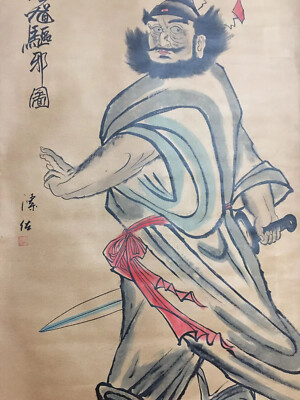 馗驅邪圖
溥佐